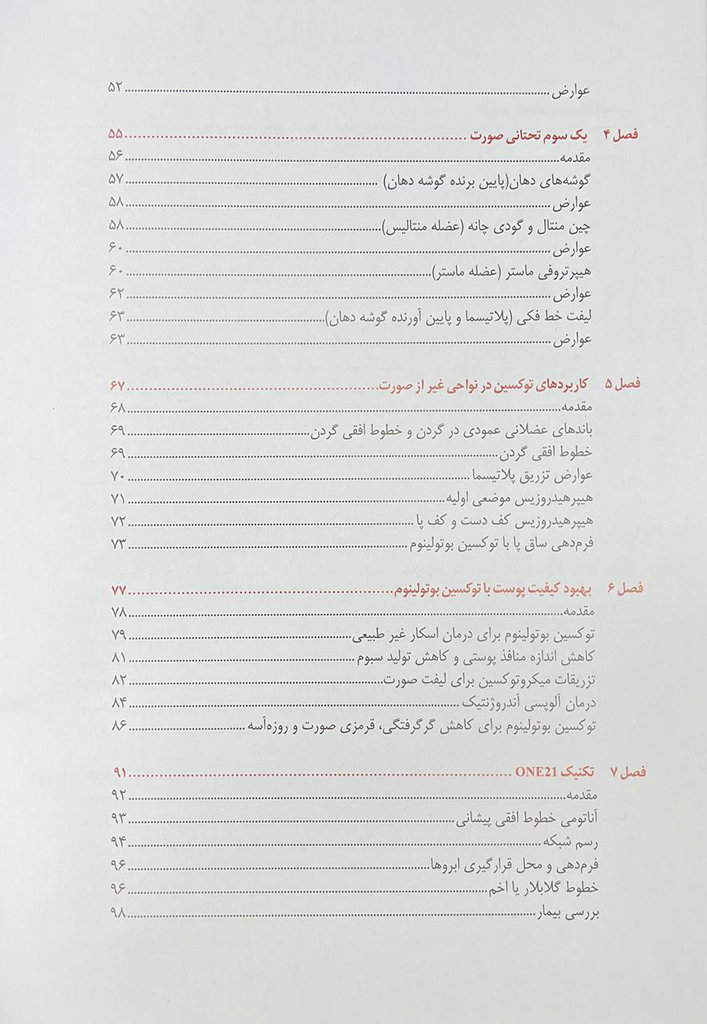 عوارض ........ ۵۲
فصل ۴ یک سوم تحتانی صورت ........ ۵۵
مقدمه ........ ۵۶
گوشه‌های دهان(پایین برنده گوشه دهان) ........ ۵۷
عوارض ........ ۵۸
چین منتال و گودی چانه (عضله منتالیس) ........ ۵۸
عوارض ........ ۶۰
هیپرتروفی ماستر (عضله ماستر) ........ ۶۰
عوارض ........ ۶۲
لیفت خط فکی (پلاتیسما و پایین آورنده گوشه دهان) ........ ۶۳
عوارض ........ ۶۳
فصل ۵ کاربردهای توکسین در نواحی غیر از صورت ........ ۶۷
مقدمه ........ ۶۸
باندهای عضلانی عمودی در گردن و خطوط افقی گردن ........ ۶۹
خطوط افقی گردن ........ ۶۹
عوارض تزریق پلاتیسما ........ ۷۰
هیپرهیدروزیس موضعی اولیه ........ ۷۱
هیپرهیدروزیس کف دست و کف پا ........ ۷۲
فرم‌دهی ساق پا با توکسین بوتولینوم ........ ۷۳
فصل ۶ بهبود کیفیت پوست با توکسین بوتولینوم ........ ۷۷
مقدمه ........ ۷۸
توکسین بوتولینوم برای درمان اسکار غیر طبیعی ........ ۷۹
کاهش اندازه منافذ پوستی و کاهش تولید سبوم ........ ۸۱
تزریقات میکروتوکسین برای لیفت صورت ........ ۸۲
درمان آلوپسی آندروژنتیک ........ ۸۴
توکسین بوتولینوم برای کاهش گرگرفتگی، قرمزی صورت و روزه‌آسه ........ ۸۶
فصل ۷ تکنیک ONE21 ........ ۹۱
مقدمه ........ ۹۲
آناتومی خطوط افقی پیشانی ........ ۹۳
رسم شبکه ........ ۹۴
فرم‌دهی و محل قرارگیری ابروها ........ ۹۶
خطوط گلابلار یا اخم ........ ۹۶
بررسی بیمار ........ ۹۸